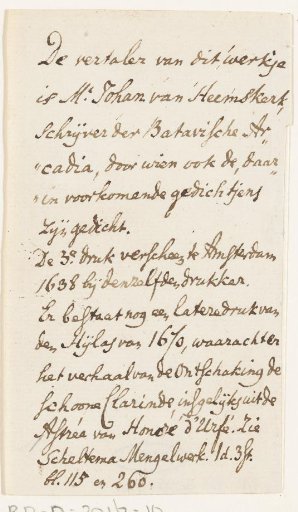 De vertaler van dit werkje
is Mr. Johan van Heemskerk,
Schrijver der Batavische Ar-
"cadia, door wien ook de, daar-
"in voorkomende gedichtjens
zijn gedicht.
De 3e druk verscheen te Amsterdam
1638 bij denzelfden drukker.
Er bestaat nog een latere druk van
den Hylas van 1670, waarachter
het verhaal van de Ontschaking der
schoone Clarinde, insgelijks uit de
Astrée van Honoré d'Urfé. Zie
Scheltema Mengelwerk. 1 d. 3 st.
bl. 115 en 260.